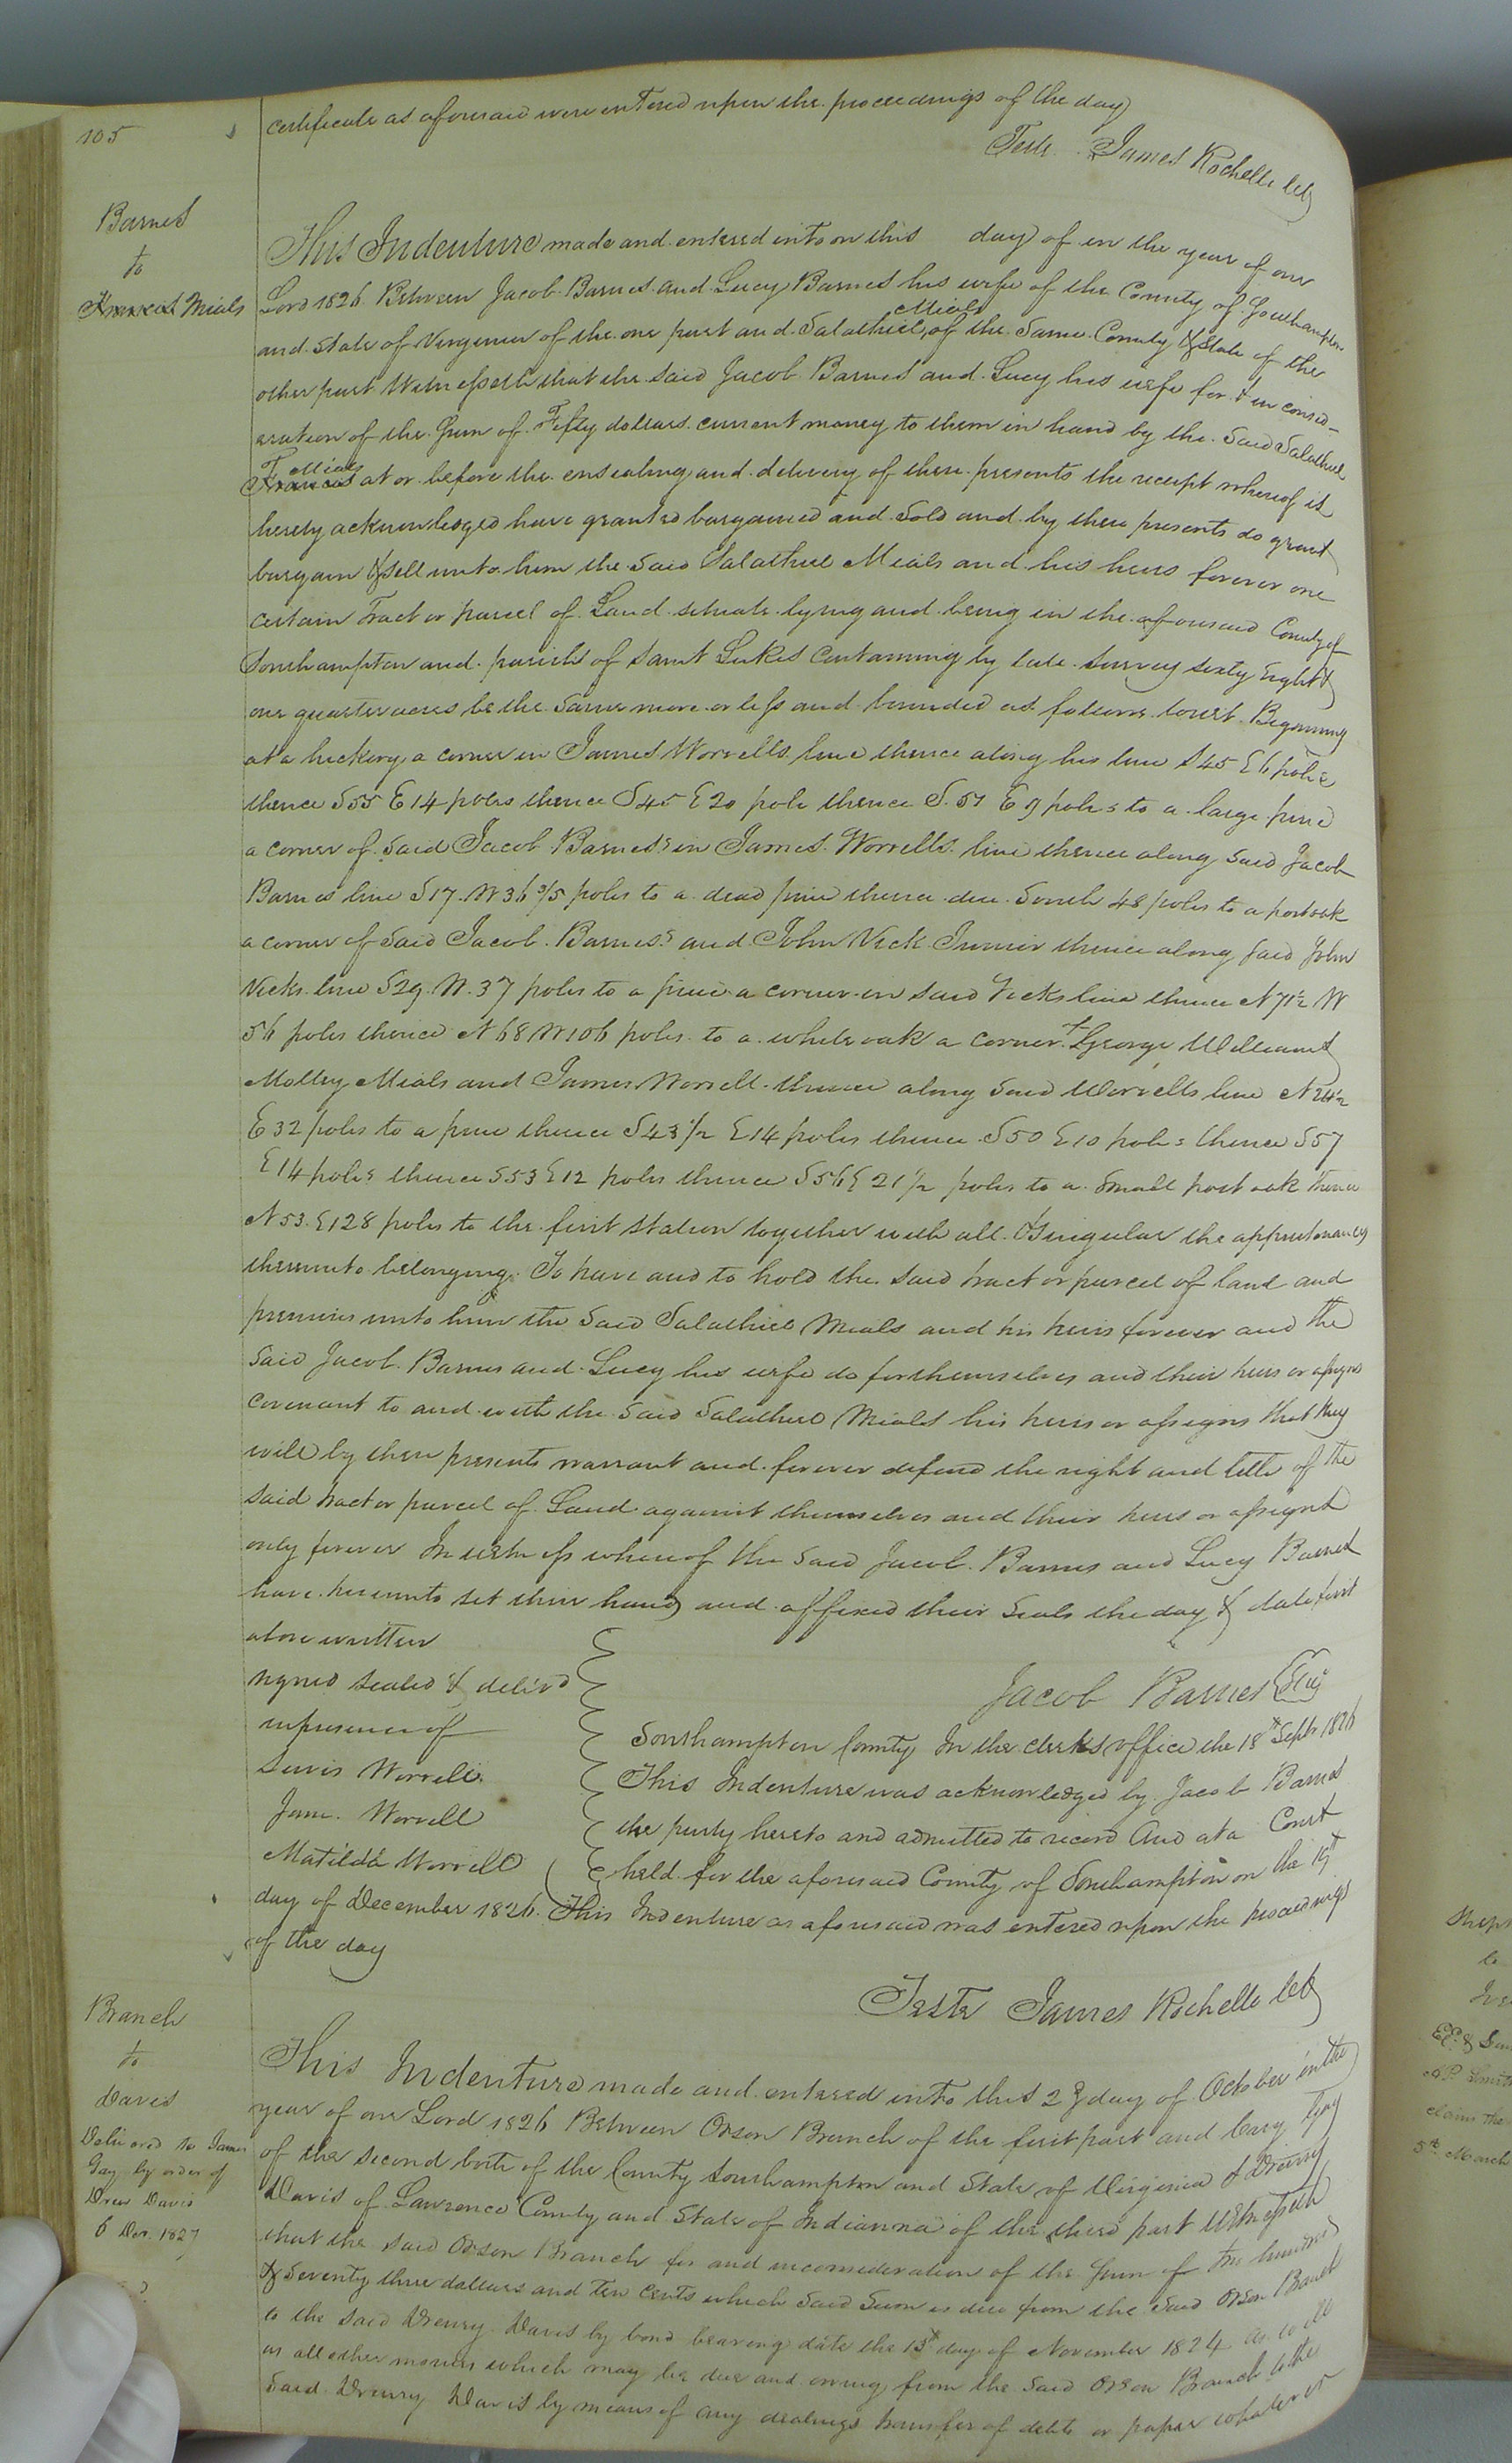 105
certificate as aforesaid were entered upon the proceedings of the day
Teste James Rochelle clk
Barnes
to
Francis Mials
This Indenture made and entered into on this day of in the year of our
Lord 1826 Between Jacob Barnes and Lucy Barnes his wife of the County of Southampton
and State of Virginia of the one part and Salathiel Mials, of the Same County & State of the
other part Witnesseth that the said Jacob Barnes and Lucy his wife for & in consid-
eration of the Sum of Fifty dollars current money to them in hand by the Said Salathiel
Francis Mials at or before the ensealing and delivery of these presents the receipt whereof is
hereby acknowledged have granted bargained and Sold and by these presents do grant
bargain & sell unto him the Said Salathiel Mials and his heirs forever one
certain Tract or parcel of Land situate lying and being in the aforesaid County of
Southampton and parish of Saint Lukes Containing by late Survey sixty Eight &
one quarter acres be the Same more or less and bounded as follows towit Begining
at a hickory a corner in James Worrells line thence along his line S45 E6 poles
thence S55 E14 poles thence S45 E20 pole thence S.57 E9 poles to a large pine
a corner of Said Jacob Barnes's in James Worrells line thence along Said Jacob
Barnes line S17 W 36 3/5 poles to a dead pine thence due South 48 poles to a post oak
a corner of Said Jacob Barnes's and John Vick Junior thence along Said John
Vicks line S29 W.37 poles to a pine a corner in Said Vicks line thence N71½ W
56 poles thence N68 W106 poles to a white oak a corner + George Williams
Molley Mials and James Worrell thence along Said Worrells line N24½
E32 poles to a pine thence S43½ E14 poles thence S50 E10 poles thence S57
E14 poles thence S53 E12 poles thence S56 E 21½ poles to a Small post oak thence
N53 E128 poles to the first station together with all & singular the appurtenances
thereunto belonging. To have and to hold the said tract or parcel of land and
premises unto him the Said Salathiel Mials and his heirs forever and the
Said Jacob Barnes and Lucy his wife do for themselves and their heirs or assigns
covenant to and with the Said Salathiel Mials his heirs or assigns that they
will by these presents warrant and forever defend the right and title of the
said tract or parcel of Land against themselves and their heirs or assigns
only forever In witness whereof the Said Jacob Barnes and Lucy Barnes
have hereunto set their hands and affixed their Seals the day & date first
above written
signed sealed & deliv'd
in presence of
Lewis Worrell
Jane Worrell
Matilda Worrell
Jacob Barnes
Southampton County In the clerks office the 18th Septr 1826
This Indenture was acknowledged by Jacob Barnes
the party hereto and admitted to record And at a Court
held for the aforesaid County of Southampton on the 19th
day of December 1826. This Indenture as aforesaid was entered upon the proceedings
of the day
Teste James Rochelle clk
Branch
to
Davis
Delivered to James
Gay by order of
Drew Davis
6 Dec. 1827
This Indenture made and entered into this day of October in the
year of our Lord 1826 Between Orson Branch of the first part and Cary Gay
of the second both of the County Southampton and State of Virginia & Drewry
Davis of Lawrence County and State of Indianna of the third part Witnesseth
that the said Orson Branch for and in consideration of the Sum of two hundred
& Seventy three dollars and Ten Cents which Said Sum is due from the said Orson Branch
to the said Drewry Davis by bond bearing date the 13th day of November 1824 as well
as all other monies which may be due and owing from the Said Orson Branch to the
Said Drewry Davis by means of any dealings transfer of debts or paper whatever
EE. &
A.P. Smith
claims the
5th March